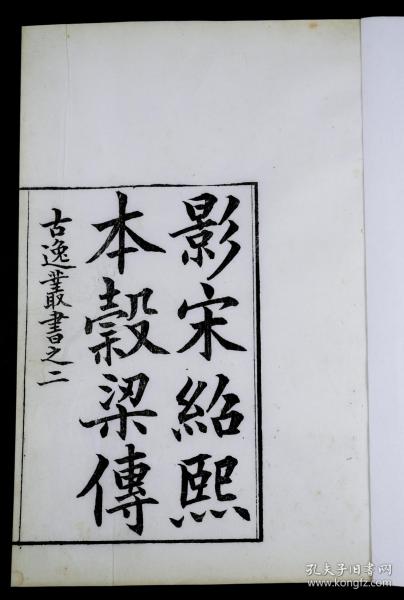 影宋紹熙
本穀梁傳
古逸叢書之二
孔夫子旧书网
www.kongfz.com